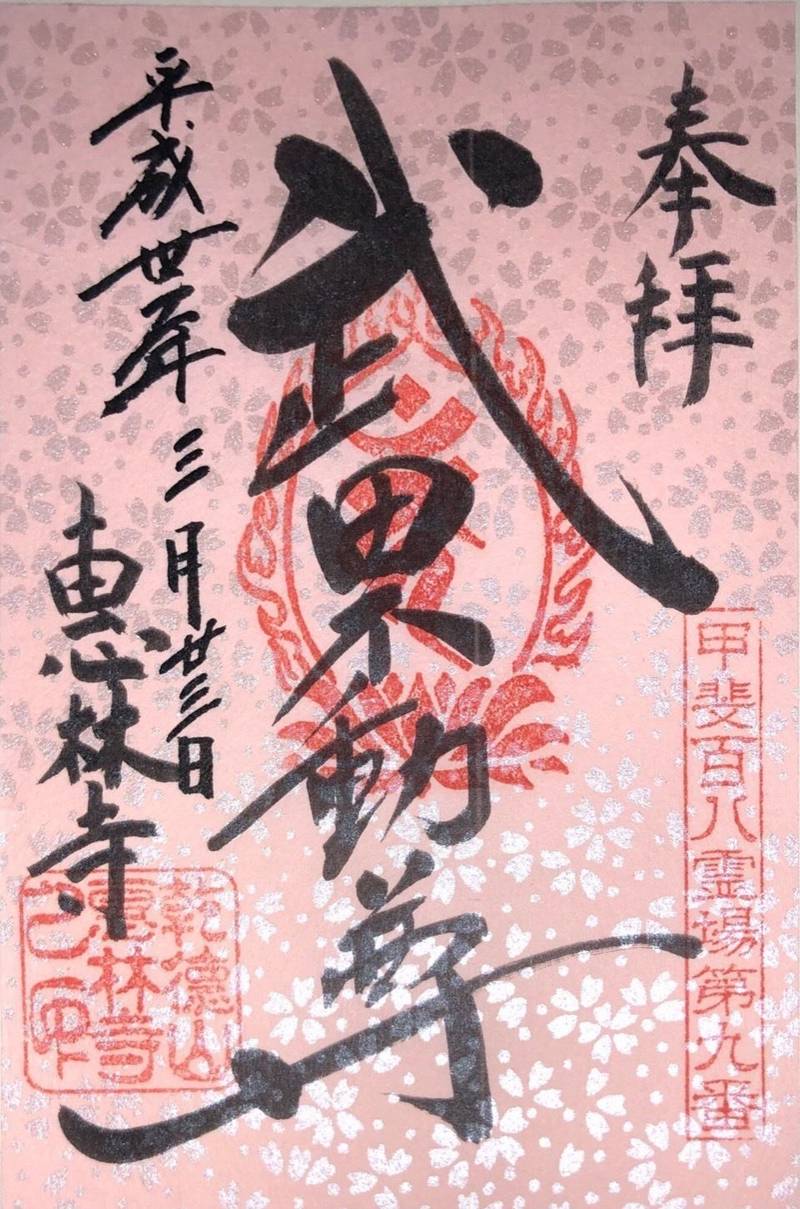 奉拝
甲斐百八霊場第九番
武田不動尊
平成丗年三月廿三日
恵林寺
乾徳山
恵林寺
之印